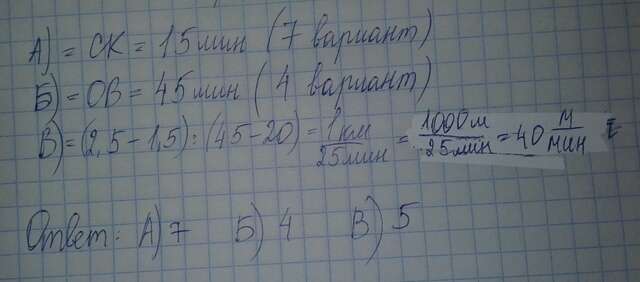 А) = СК = 15 мин (7 вариант)
Б) = ОВ = 45 мин (4 вариант)
В) = (2,5 - 1,5) : (45 - 20) = 1 км / 25 мин = 1000 м / 25 мин = 40 м / мин
Ответ: А) 7 Б) 4 В) 5